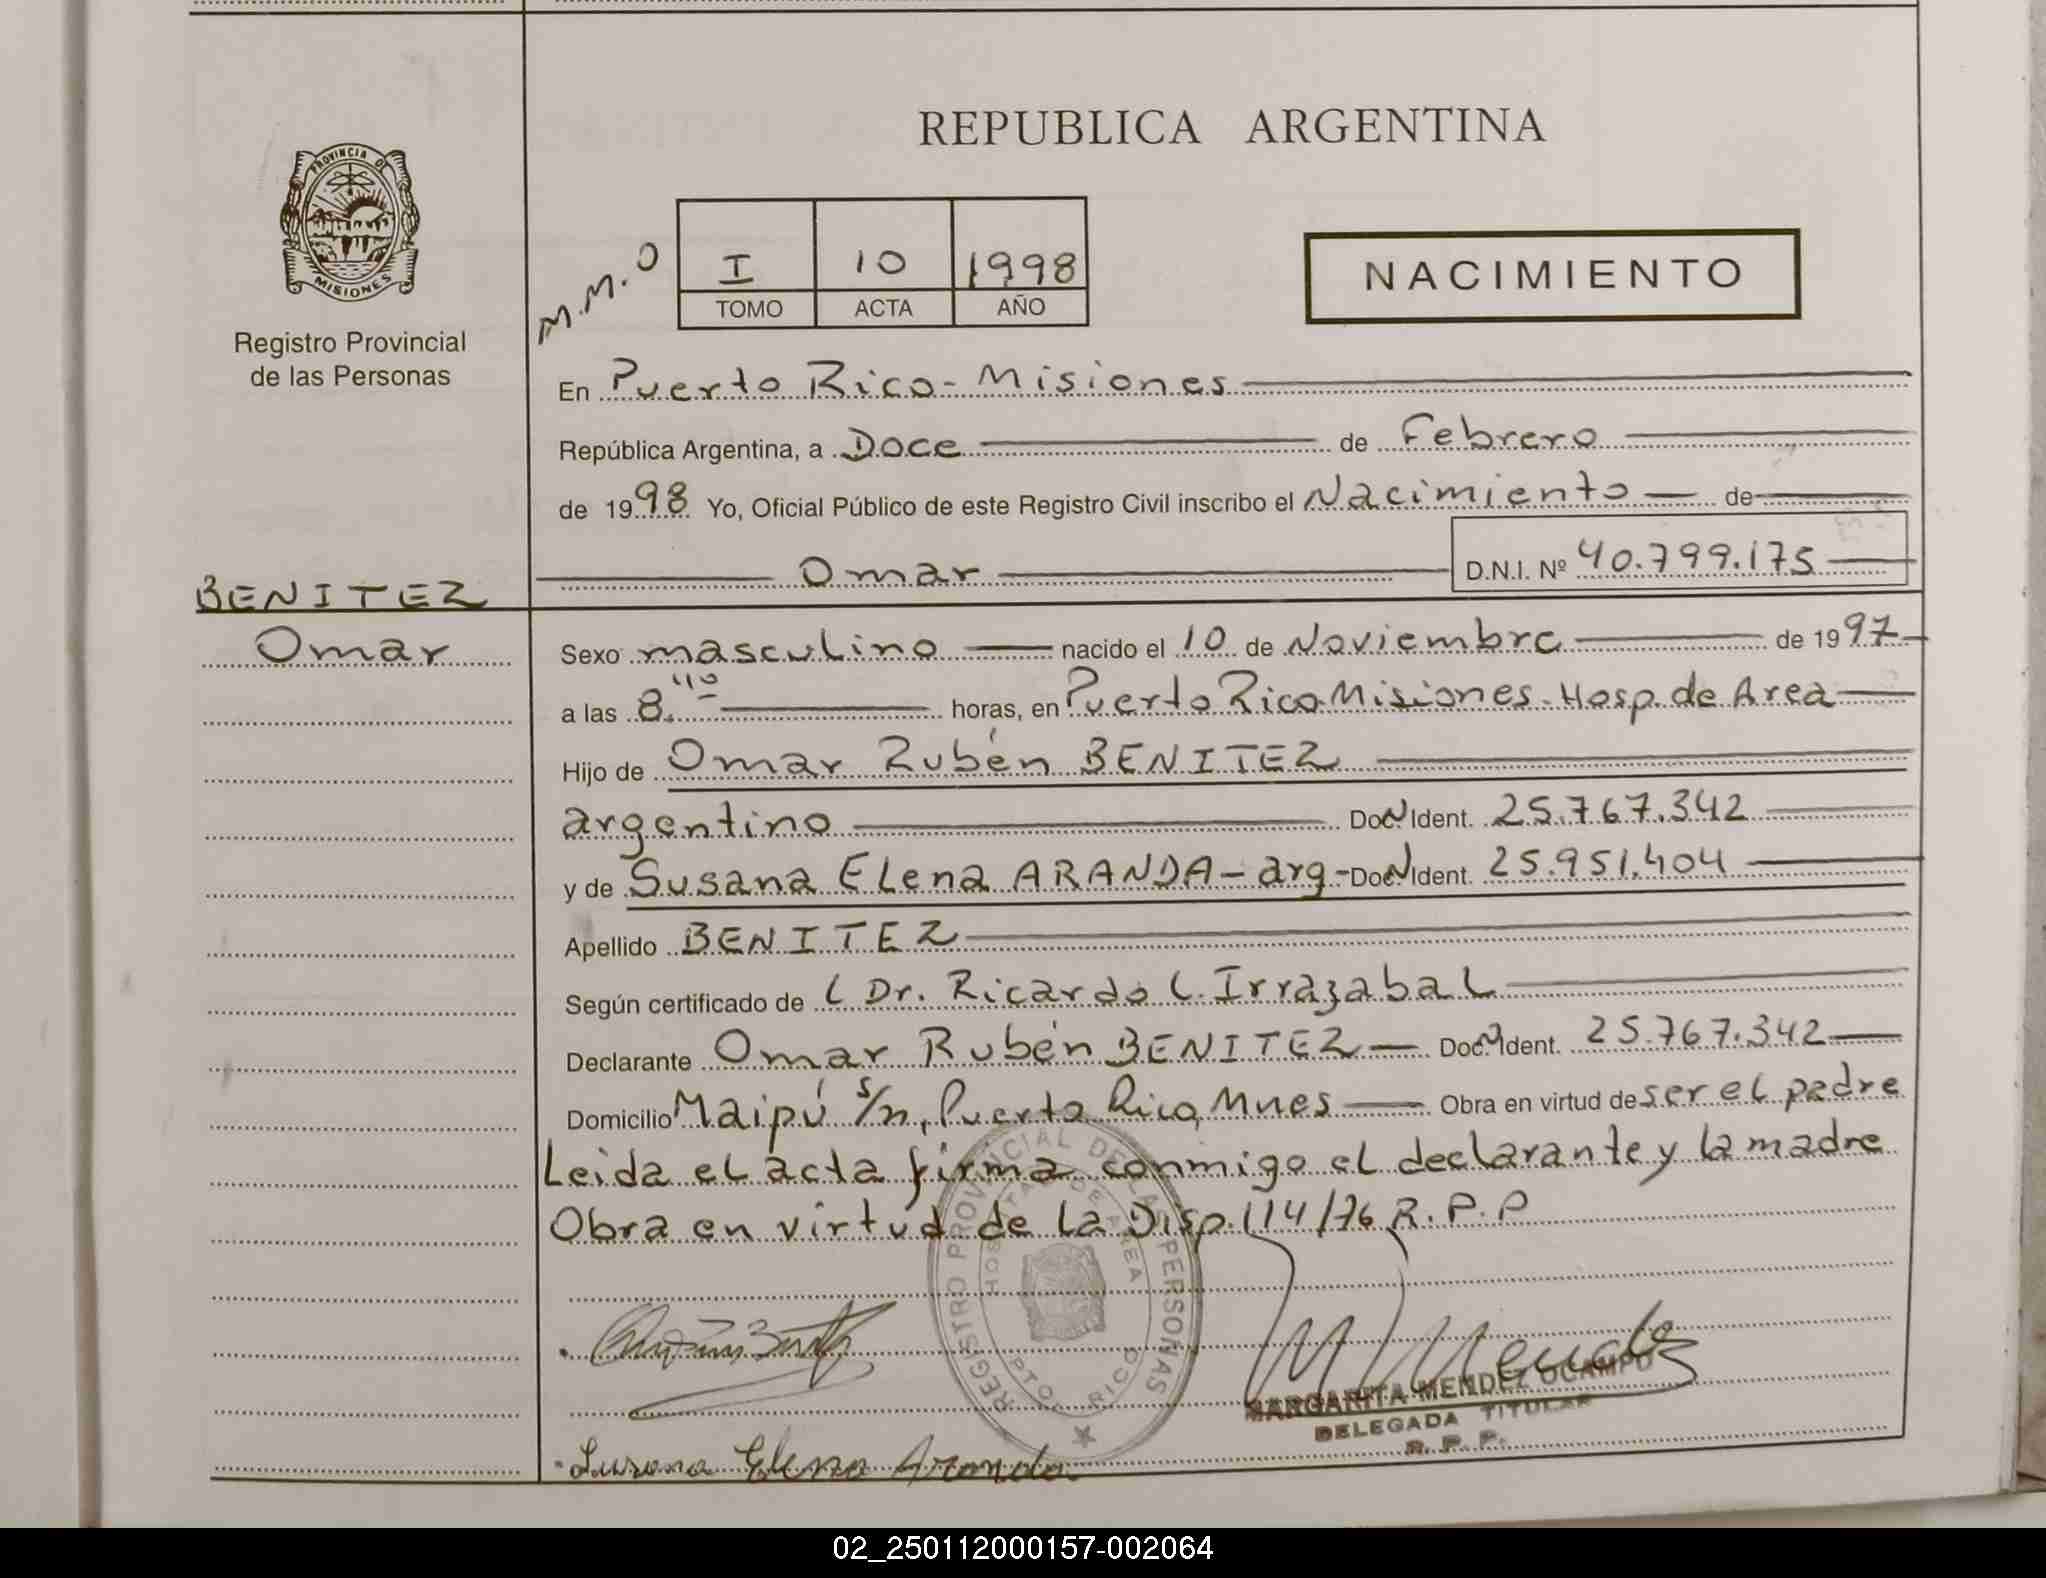 REPUBLICA ARGENTINA
PROVINCIA DE MISIONES
Registro Provincial
de las Personas
M.M.O
I 10 1998
TOMO ACTA AÑO
NACIMIENTO
En Puerto Rico - Misiones
República Argentina, a Doce de Febrero
de 1998 Yo, Oficial Público de este Registro Civil inscribo el Nacimiento de
Omar D.N.I. Nº 40.799.175
BENITEZ
Omar
Sexo masculino nacido el 10 de Noviembre de 1997
a las 8.40 horas, en Puerto Rico Misiones. Hosp. de Area
Hijo de Omar Rubén BENITEZ
argentino Doc. N Ident. 25.767.342
y de Susana Elena ARANDA - arg - Doc. N Ident. 25.951.404
Apellido BENITEZ
Según certificado de L Dr. Ricardo L. Irrazabal
Declarante Omar Rubén BENITEZ Doc. N Ident. 25.767.342
Domicilio Maipú s/n, Puerto Rico, Mnes Obra en virtud de ser el padre
Leida el acta firma conmigo el declarante y la madre
Obra en virtud de la Disp. 114/76 R.P.P
REGISTRO PROVINCIAL DE LAS PERSONAS
HOSPITAL DE AREA
PTO. RICO
M Mendez
MARGARITA MENDEZ OCAMPO
DELEGADA TITULAR
R.P.P.
Susana Elena Aranda
02_250112000157-002064